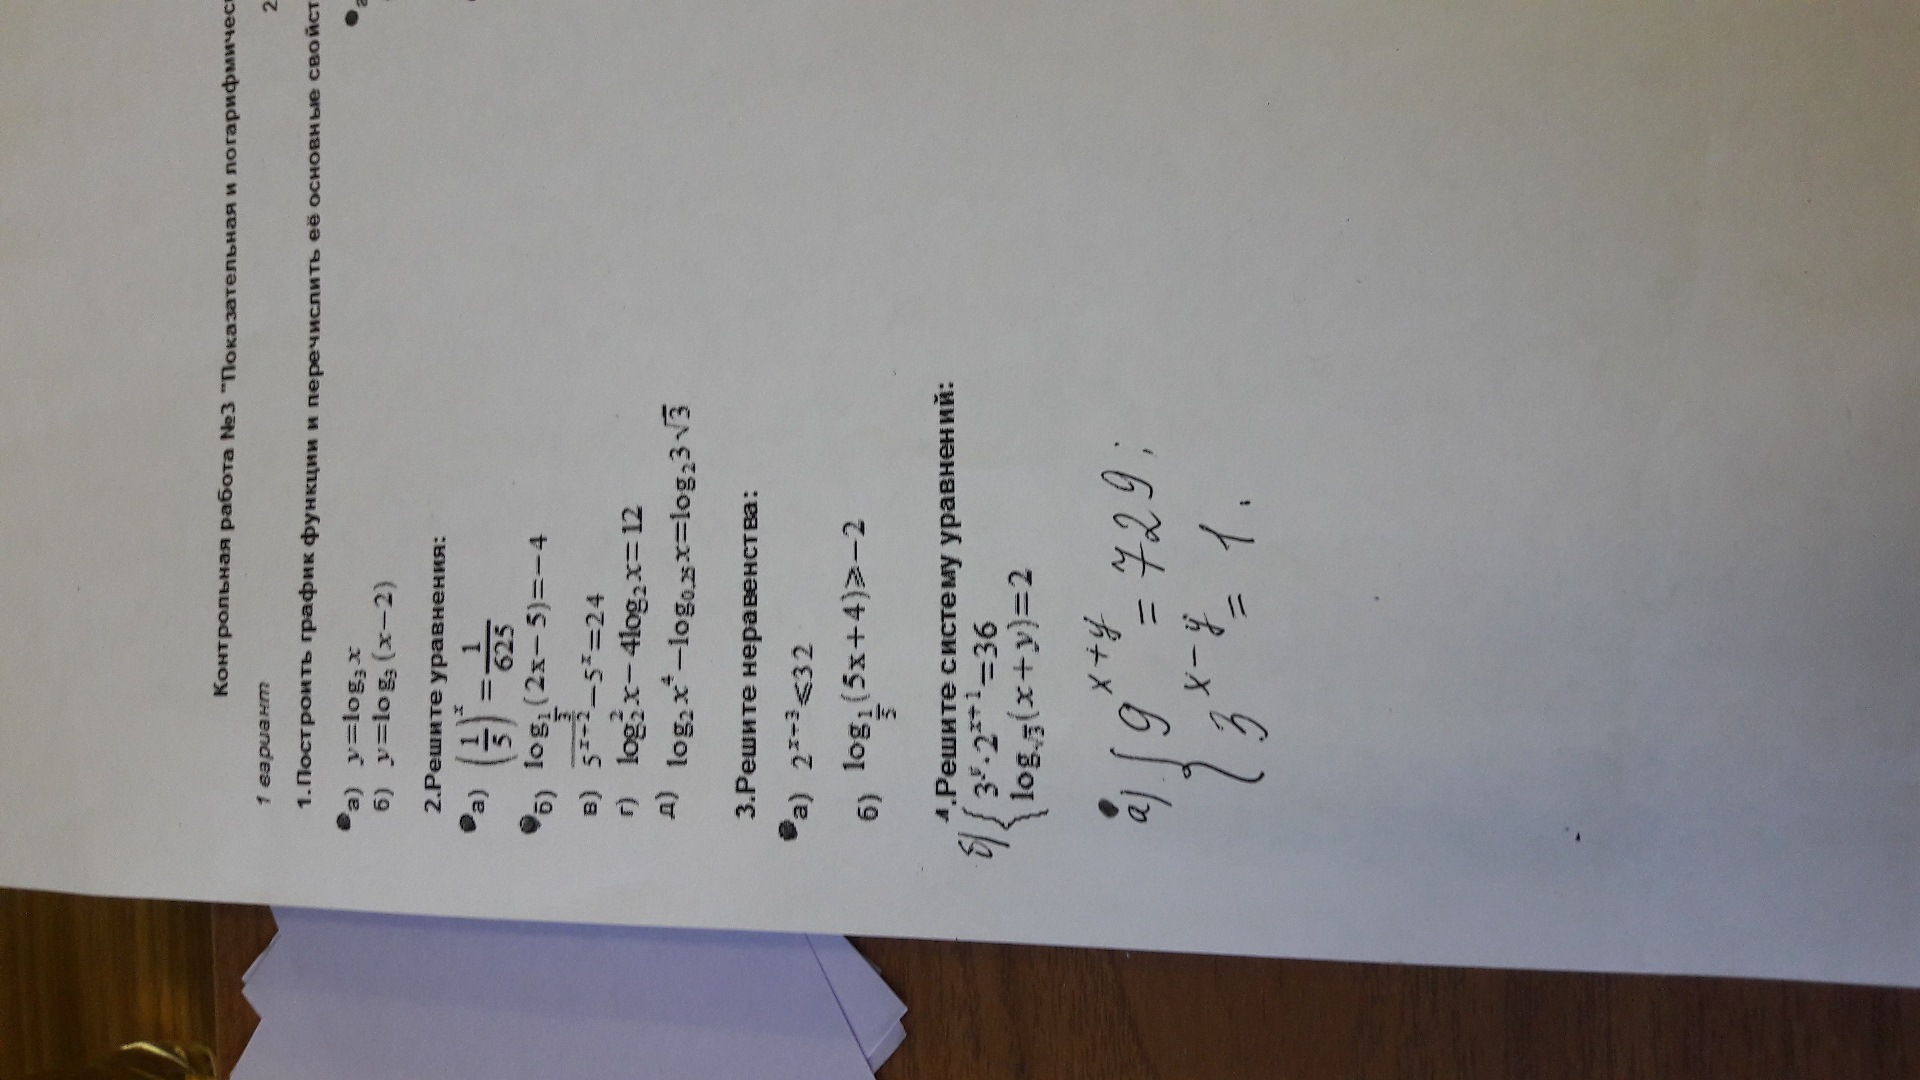 Контрольная работа №3 "Показательная и логарифмичес
1 вариант
2
1.Построить график функции и перечислить её основные свойст
а) y=log₃ x
б) y=log₃(x−2)
2.Решите уравнения:
а) (1/5)^x = 1/625
б) log_{1/3}(2x−5)=−4
в) 5^{x+2}−5^x=24
г) log₂² x−4log₂ x=12
д) log₂ x⁴−log_{0.25} x=log₂ 3√3
3.Решите неравенства:
а) 2^{x+3}⩽32
б) log_{1/5}(5x+4)⩾−2
4.Решите систему уравнений:
б) { 3^y·2^{x+1}=36
log_{√3}(x+y)=2
а) { 9^{x+y} = 729;
3^{x−y} = 1.